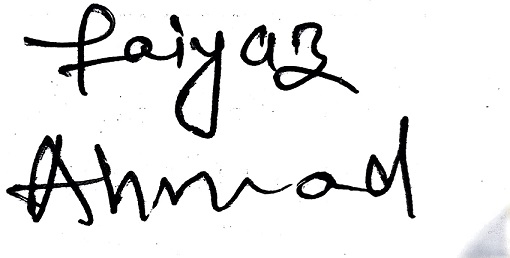 Faiyaz
Ahmad